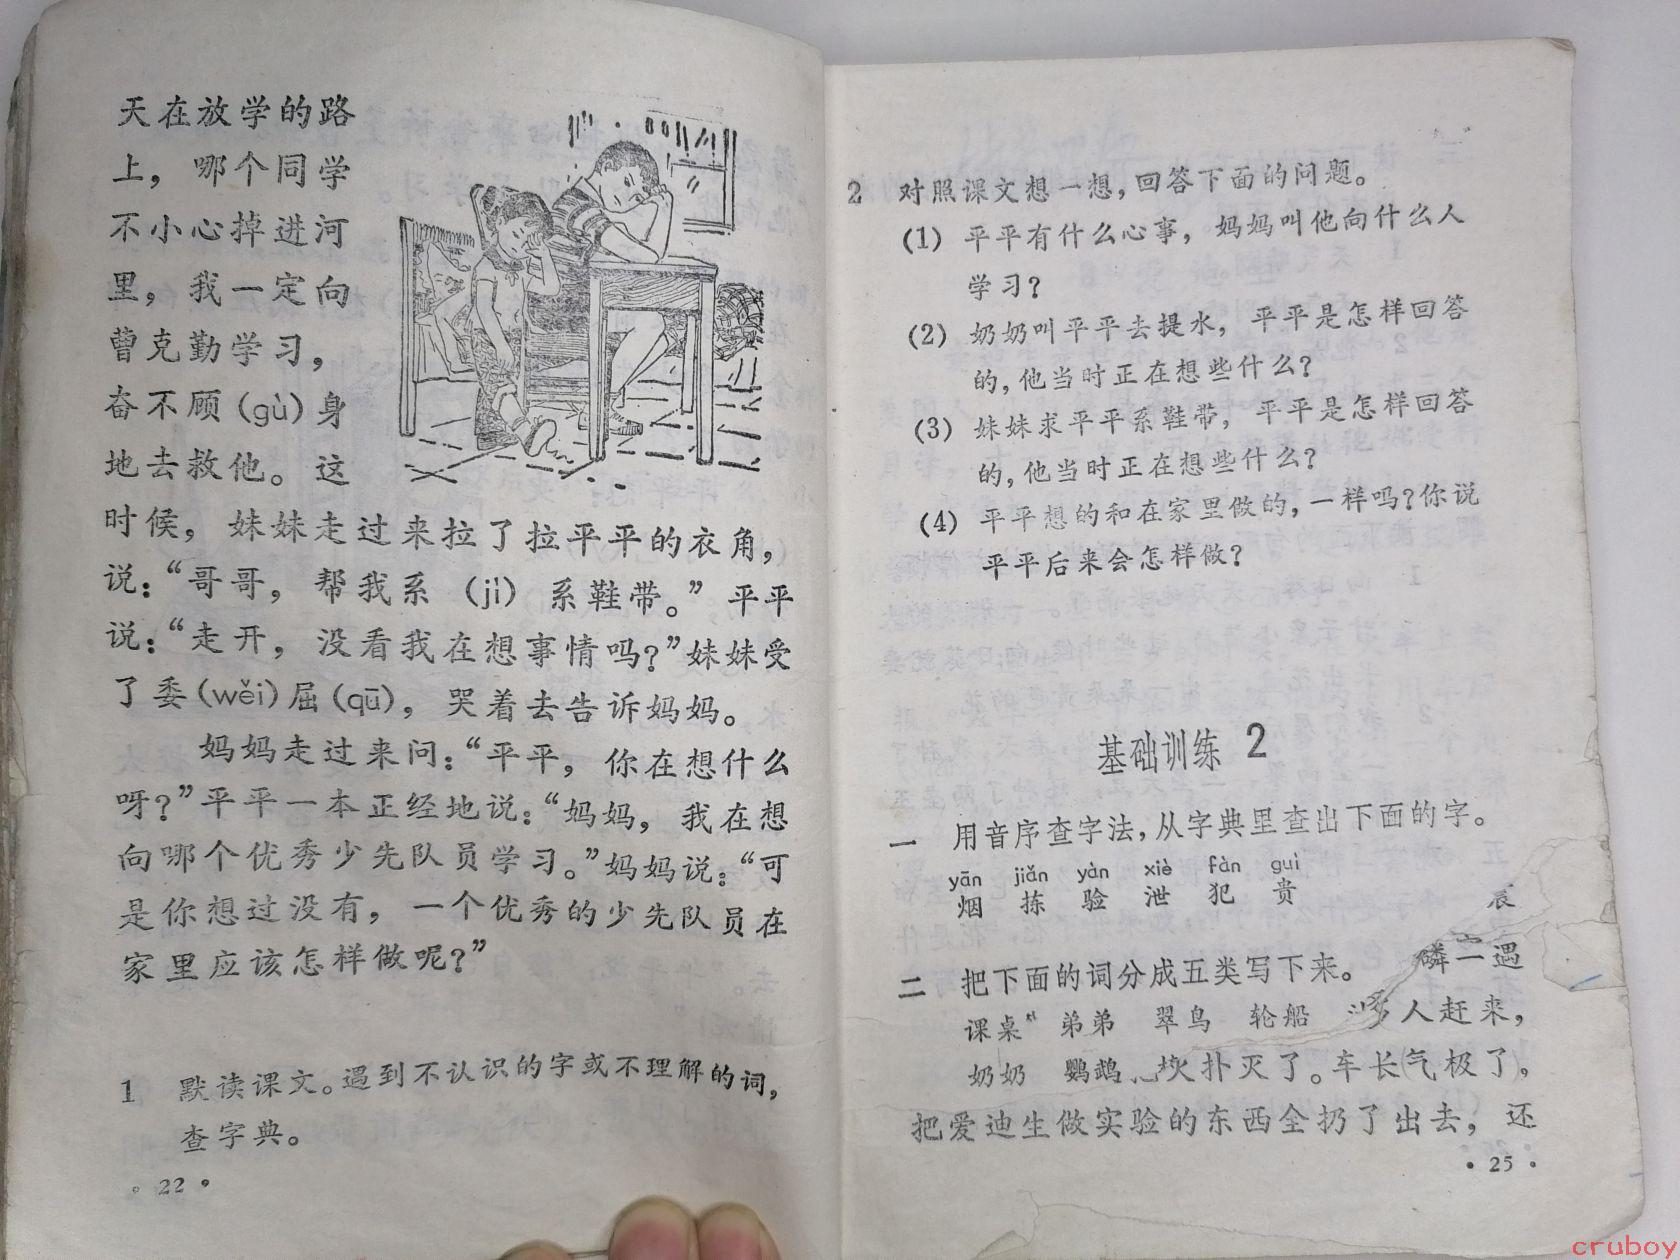 天在放学的路
上，哪个同学
不小心掉进河
里，我一定向
曹克勤学习，
奋不顾(gù)身
地去救他。这
时候，妹妹走过来拉了拉平平的衣角，
说：“哥哥，帮我系（jì）系鞋带。”平平
说：“走开，没看我在想事情吗？”妹妹受
了委(wěi)屈(qū)，哭着去告诉妈妈。
妈妈走过来问：“平平，你在想什么
呀？”平平一本正经地说：“妈妈，我在想
向哪个优秀少先队员学习。”妈妈说：“可
是你想过没有，一个优秀的少先队员在
家里应该怎样做呢？”
1 默读课文。遇到不认识的字或不理解的词，
查字典。
• 22 •
2 对照课文想一想，回答下面的问题。
(1) 平平有什么心事，妈妈叫他向什么人
学习？
(2) 奶奶叫平平去提水，平平是怎样回答
的，他当时正在想些什么？
(3) 妹妹求平平系鞋带，平平是怎样回答
的，他当时正在想些什么？
(4) 平平想的和在家里做的，一样吗？你说
平平后来会怎样做？
基础训练 2
一 用音序查字法，从字典里查出下面的字。
yān jiǎn yàn xiè fàn guì
烟 拣 验 泄 犯 贵
辰
二 把下面的词分成五类写下来。 磷一遇
课桌 弟弟 翠鸟 轮船 人赶来，
奶奶 鹦鹉 扑灭了。车长气极了，
把爱迪生做实验的东西全扔了出去，还
• 25 •
cruboy